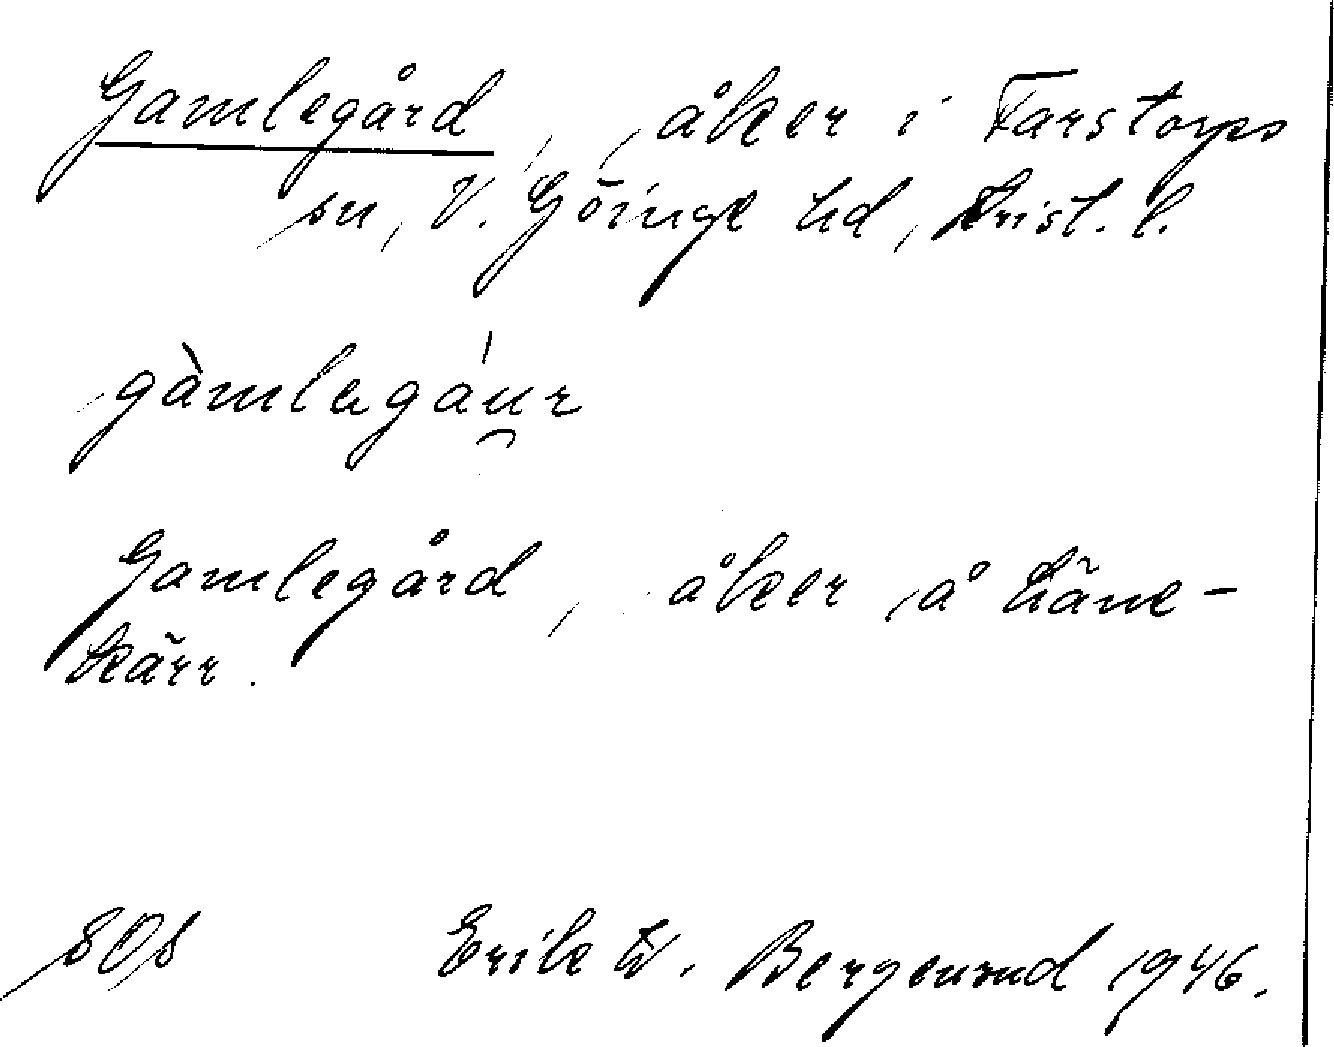 Gamlegård, åker i Farstorps
sn, V. Göinge hd, Krist. l.
gàmlagáu̯r
Gamlegård, åker å Häne-
kärr.
Erik W. 1946.